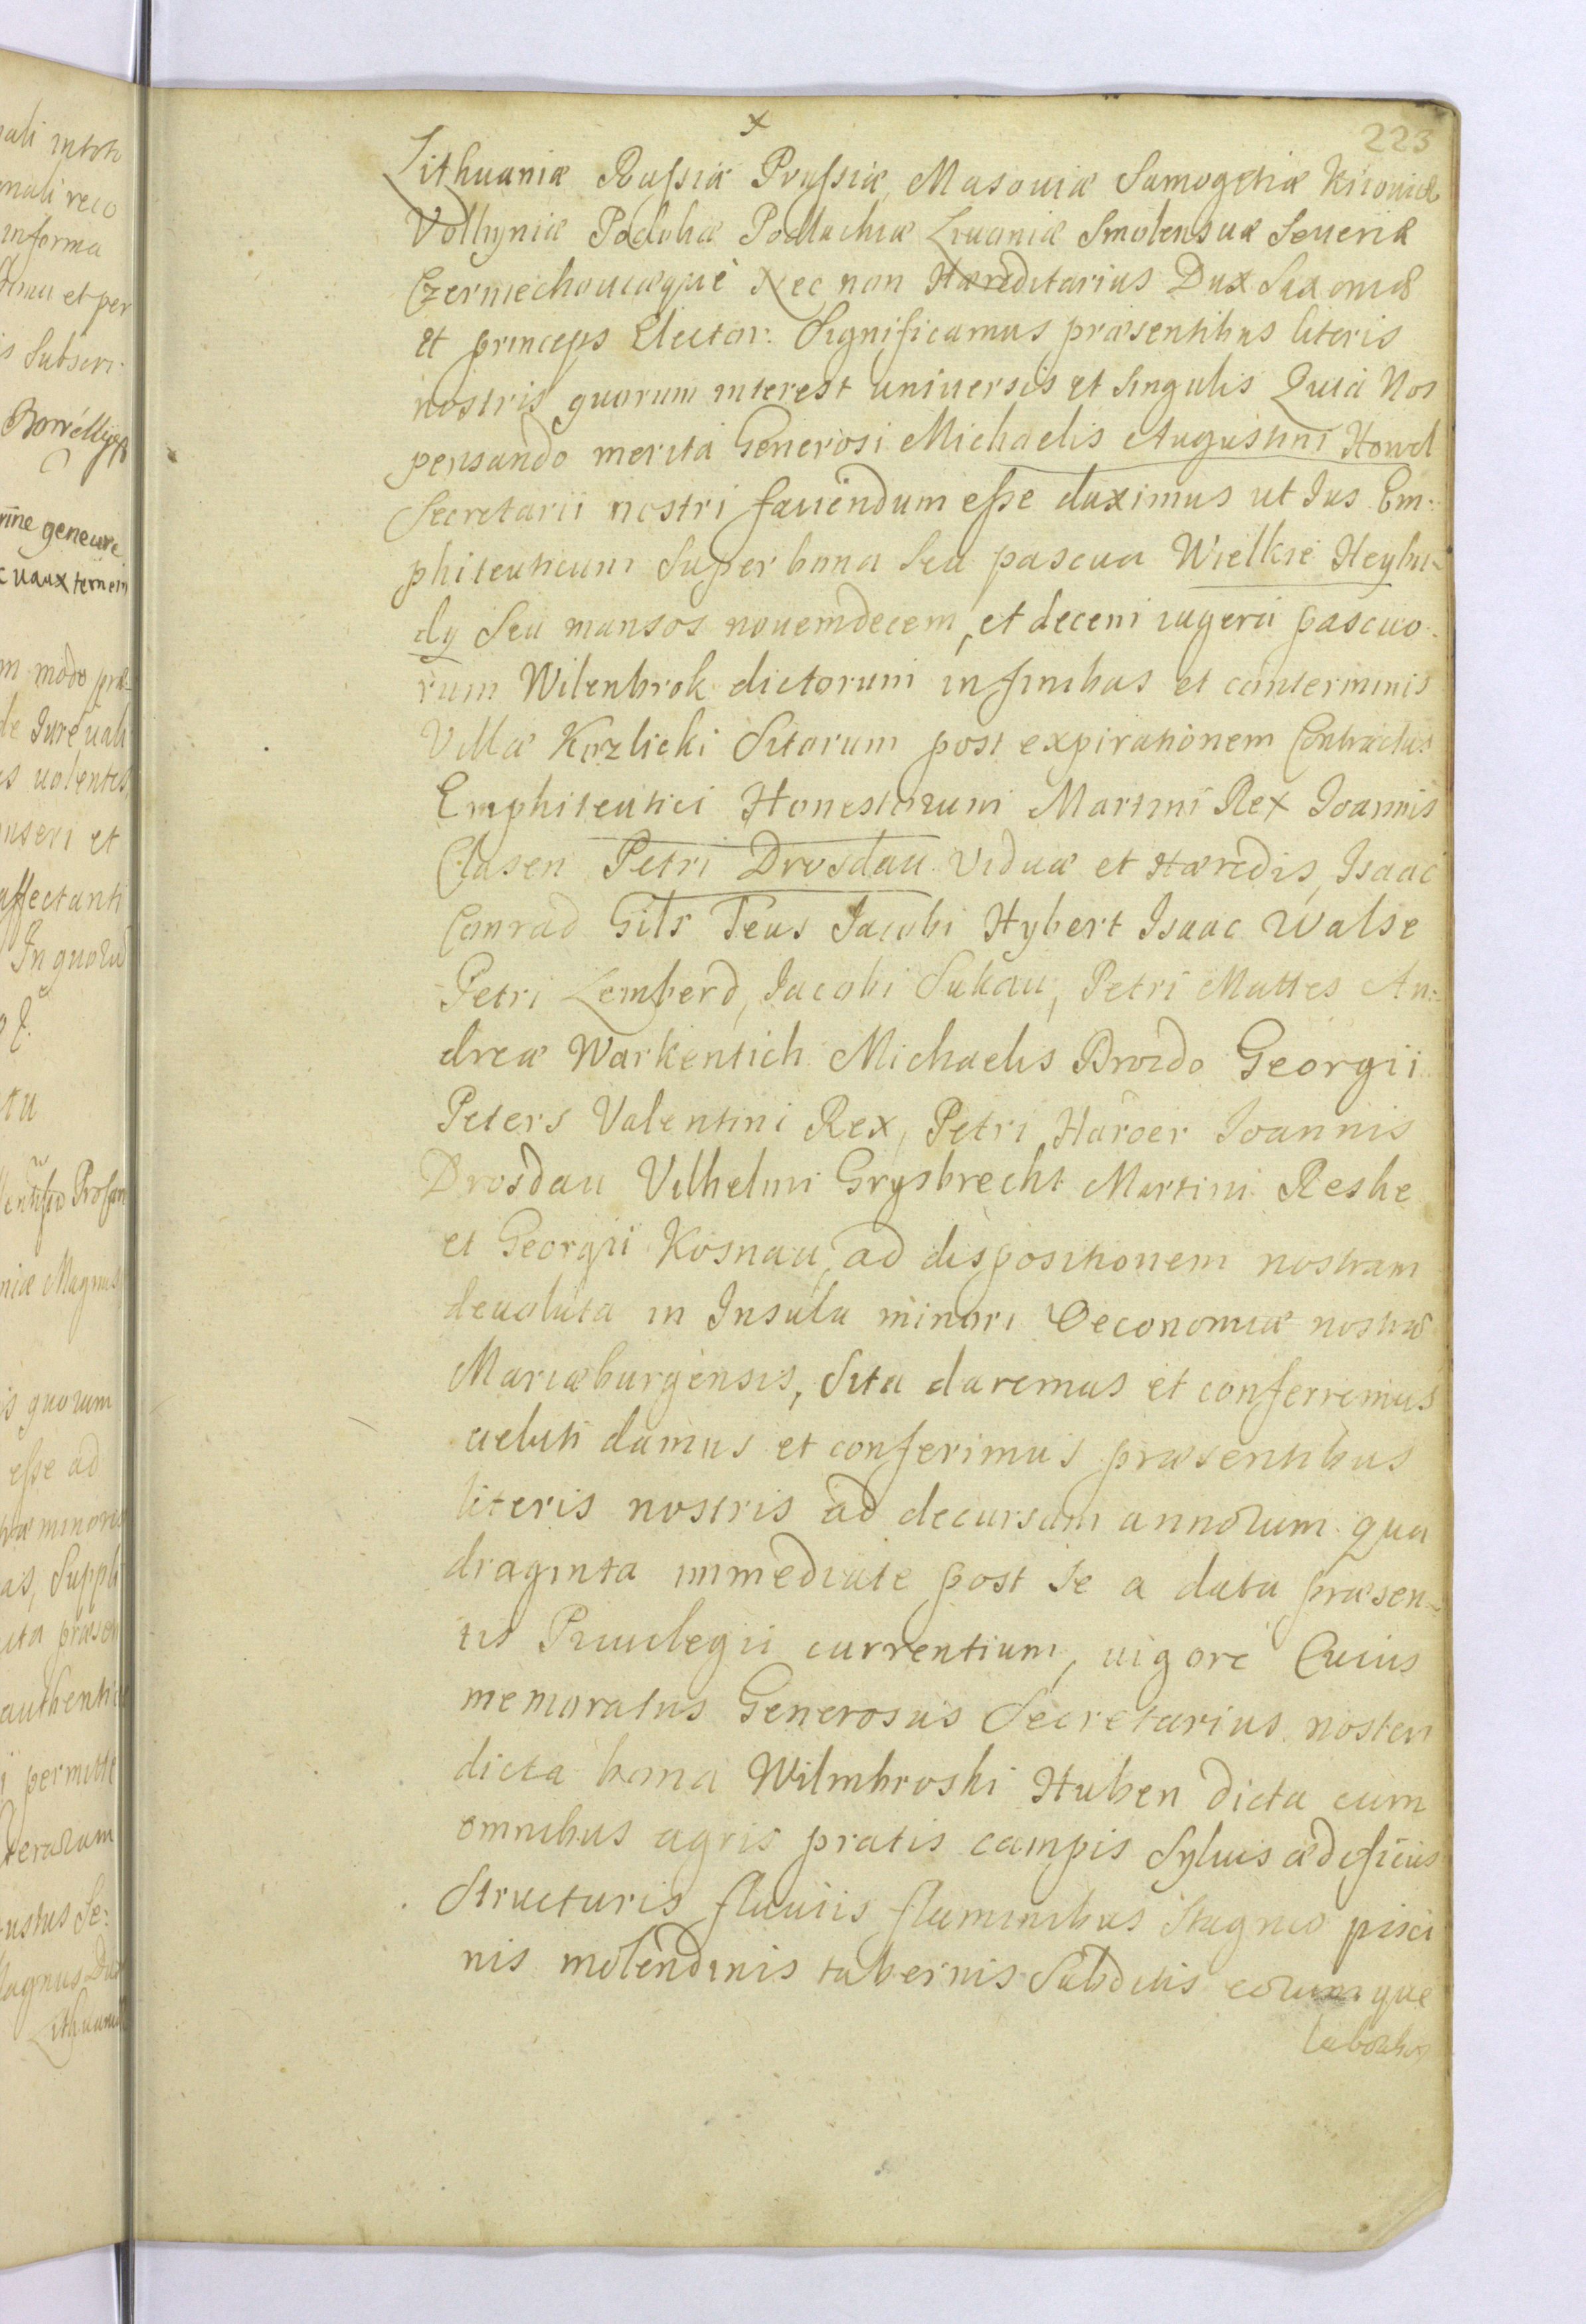 223
x
Lithuaniæ Russiæ Prussiæ Masouiæ Samogetiæ Kiiouiæ
Volhyniæ Podoliæ Podlachiæ Liuoniæ Smolensciæ Seueriæ
Czerniechouiæque Nec non Hæreditarius Dux Saxoniæ
et princeps Elector: Significamus præsentibus literis
nostris quorum interest uniuersis et singulis Quia Nos
pensando merita Generosi Michaelis Augustini Howel
Secretarii nostri fauendum esse duximus ut Ius Em-
phiteuticum super bona seu pascua Wielkie Heybu-
dy seu mansos nouemdecem, et decem iugera pascuo-
rum Wilenbrok dictorum in finibus et conterminis
Villæ Kozlicki Sitorum post expirationem Contractus
Emphiteutici Honestorum Martini Rex Ioannis
Clasen Petri Drosdau Viduæ et Hæredis, Isaac
Conrad Gilr Teus Iacobi Hybert Isaac Walse
Petri Lemberd, Iacobi Sukau, Petri Mattes An-
dreæ Warkentich Michaelis Brozdo Georgii
Peters Valentini Rex, Petri Harder Ioannis
Drosdau Vilhelmi Grysbrecht Martini Reshe
et Georgii Kosnau, ad dispositionem nostram
deuoluta in Insula minori Oeconomiæ nostræ
Mariæburgensis, Sita daremus et conferremus
ueluti damus et conferimus præsentibus
literis nostris ad decursum annorum qua
draginta immediate post se a data præsen-
tis Priuilegii currentium, uigore Cuius
memoratus Generosus Secretarius noster
dicta bona Wilmbroski Huben dicta cum
omnibus agris pratis campis Syluis ædificiis
Structuris fluuiis fluminibus Stagnis pisci
nis molendinis tabernis Subditis eorumque
laboribus